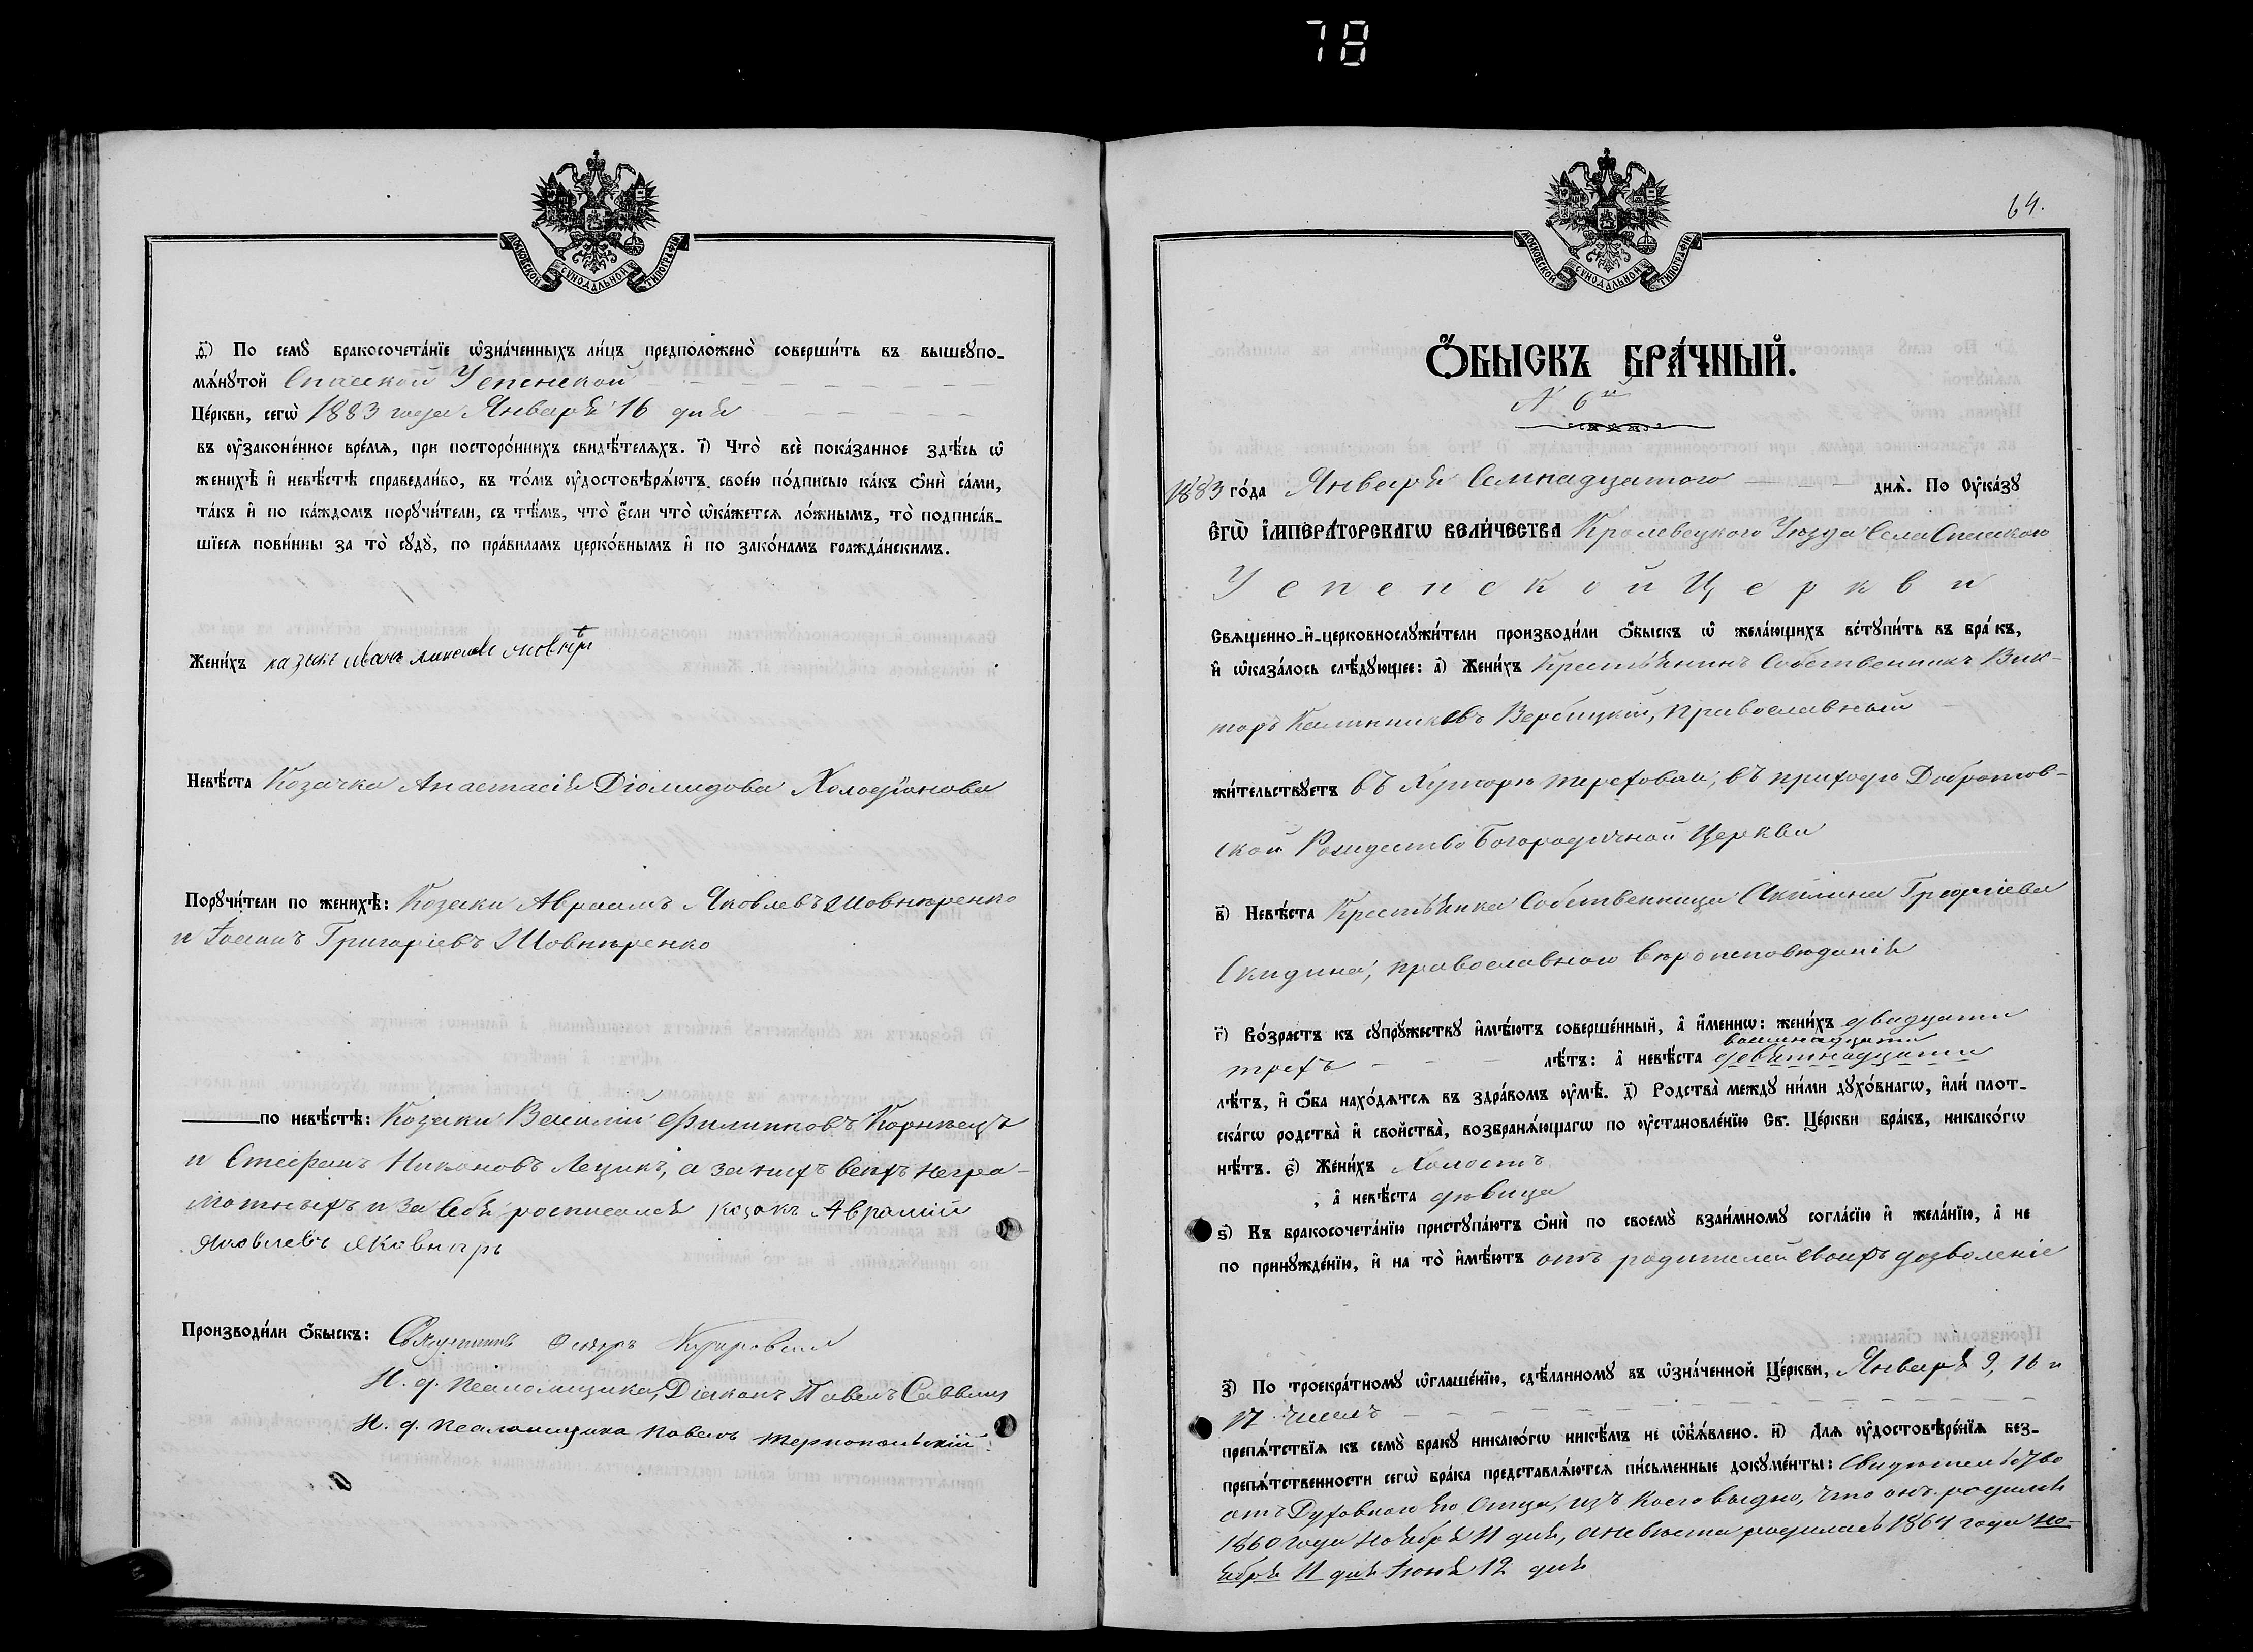 78
МОСКОВСКОЙ СѴНОДАЛЬНОЙ ТИПОГРАФІИ
д҃і) По семꙋ̀ бракосочета́нїе ѡ҆зна́ченныхъ ли́цъ предположено̀ соверши́ть въ вышеꙋпо-
мѧ́нꙋтой Спасской Успенской
Це́ркви, сегѡ̀ 1883 года Января 16 дня
въ ᲂу҆законе́нное вре́мѧ, при посторо́ннихъ свидѣ́телѧхъ. і҃) Что̀ всѐ пока́занное здѣ́сь ѡ҆
женихѣ̀ и҆ невѣ́стѣ справедли́во, въ то́мъ ᲂу҆достовѣрѧ́ютъ свое́ю по́дписью ка́къ ѻ҆нѝ са́ми,
та́къ и҆ по ка́ждомъ порꙋчи́тели, съ тѣ́мъ, что̀ є҆́сли что̀ ѡ҆ка́жетсѧ ло́жнымъ, то̀ подписа́в-
шїесѧ пови́нны за то̀ сꙋдꙋ̀, по пра́виламъ церко́внымъ и҆ по зако́намъ гражда́нскимъ.
Жени́хъ казакъ Иванъ
Невѣ́ста Козачка Анастасія Діомидова Холодіонова
Порꙋчи́тели по женихѣ̀: Козаки Авраамъ Яковлевъ Шовнѣренко
и Іоаннъ Григоріевъ Шовнѣренко
по невѣ́стѣ: Козаки Василій Филиповъ Корнѣецъ
и Стефанъ Никоновъ Лецикъ, а за нихъ всѣхъ негра-
мотныхъ и за себя росписался козакъ Аврамій
Яковлевъ
Производи́ли ѻ҆́быскъ: Священникъ Петръ
И. д. псаломщика, Діаконъ Павелъ Саввич
И. д. псаломщика Павелъ Тернопольскій
64.
МОСКОВСКОЙ СѴНОДАЛЬНОЙ ТИПОГРАФІИ
Ѻ҆́БЫСКЪ БРА́ЧНЫЙ.
N 6й
1883 го́да Января Семнадцатого днѧ̀. По ᲂу҆ка́зꙋ
є҆гѡ̀ і҆мпера́торскагѡ вели́чества Кролевецкого Уѣзда Села Спасского
Успенской Церкви
Свѧщенно-и҆-церковнослꙋжи́тели производи́ли ѻ҆́быскъ ѡ҆ жела́ющихъ встꙋпи́ть въ бра́къ,
и҆ ѡ҆каза́лось слѣ́дꙋющее: а҃) Жени́хъ Крестьянинъ Собственникъ Вик-
торъ Калинниковъ Вербицкій, православный
жи́тельствꙋетъ въ Хуторѣ Тереховой, въ приходѣ Добротов-
ской Рождество Богородичной Церкви
в҃) Невѣ́ста Крестьянка Собственница Акилина Георгіева
Скидина, православного вѣроисповѣданія
г҃) Во́зрастъ къ сꙋпрꙋ́жествꙋ и҆мѣ́ютъ соверше́нный, а҆ и҆́меннѡ: жени́хъ двадцати
трехъ лѣ́тъ: а҆ невѣ́ста девятнадцати восемнадцати
лѣ́тъ, и҆ ѻ҆́ба нахо́дѧтсѧ въ здра́вомъ ᲂу҆мѣ̀. д҃) Родства̀ междꙋ ни́ми дꙋхо́внагѡ, и҆лѝ плот-
ска́гѡ родства̀ и҆ свойства̀, возбранѧ́ющагѡ по ᲂу҆становле́нїю Св҃. Це́ркви бра́къ, никако́гѡ
нѣ́тъ. є҃) Жени́хъ Холостъ
, а҆ невѣ́ста дѣвица
ѕ҃) Къ бракосочета́нїю пристꙋпа́ютъ ѻ҆нѝ по своемꙋ̀ взаи́мномꙋ согла́сїю и҆ жела́нїю, а҆ не
по принꙋжде́нїю, и҆ на то̀ и҆мѣ́ютъ отъ родителей своихъ дозволеніе
з҃) По троекра́тномꙋ ѡ҆глаше́нїю, сдѣ́ланномꙋ въ ѡ҆зна́ченной Це́ркви, Января 9, 16 и
17 числъ
препѧ́тствїѧ къ семꙋ̀ бракꙋ никако́гѡ никѣ́мъ не ѡ҆б̾ѧ́влено. и҃) Длѧ ᲂу҆достовѣре́нїѧ без-
препѧ́тственности сегѡ̀ бра́ка представлѧ́ютсѧ пи́сьменные докꙋме́нты: Свидѣтельство
отъ Духовного его Отца, изъ коего видно, что онъ родился
1860 года Ноября 11 дня, а невѣста родилась 1864 года но-
ября 11 дня Іюня 12 дня